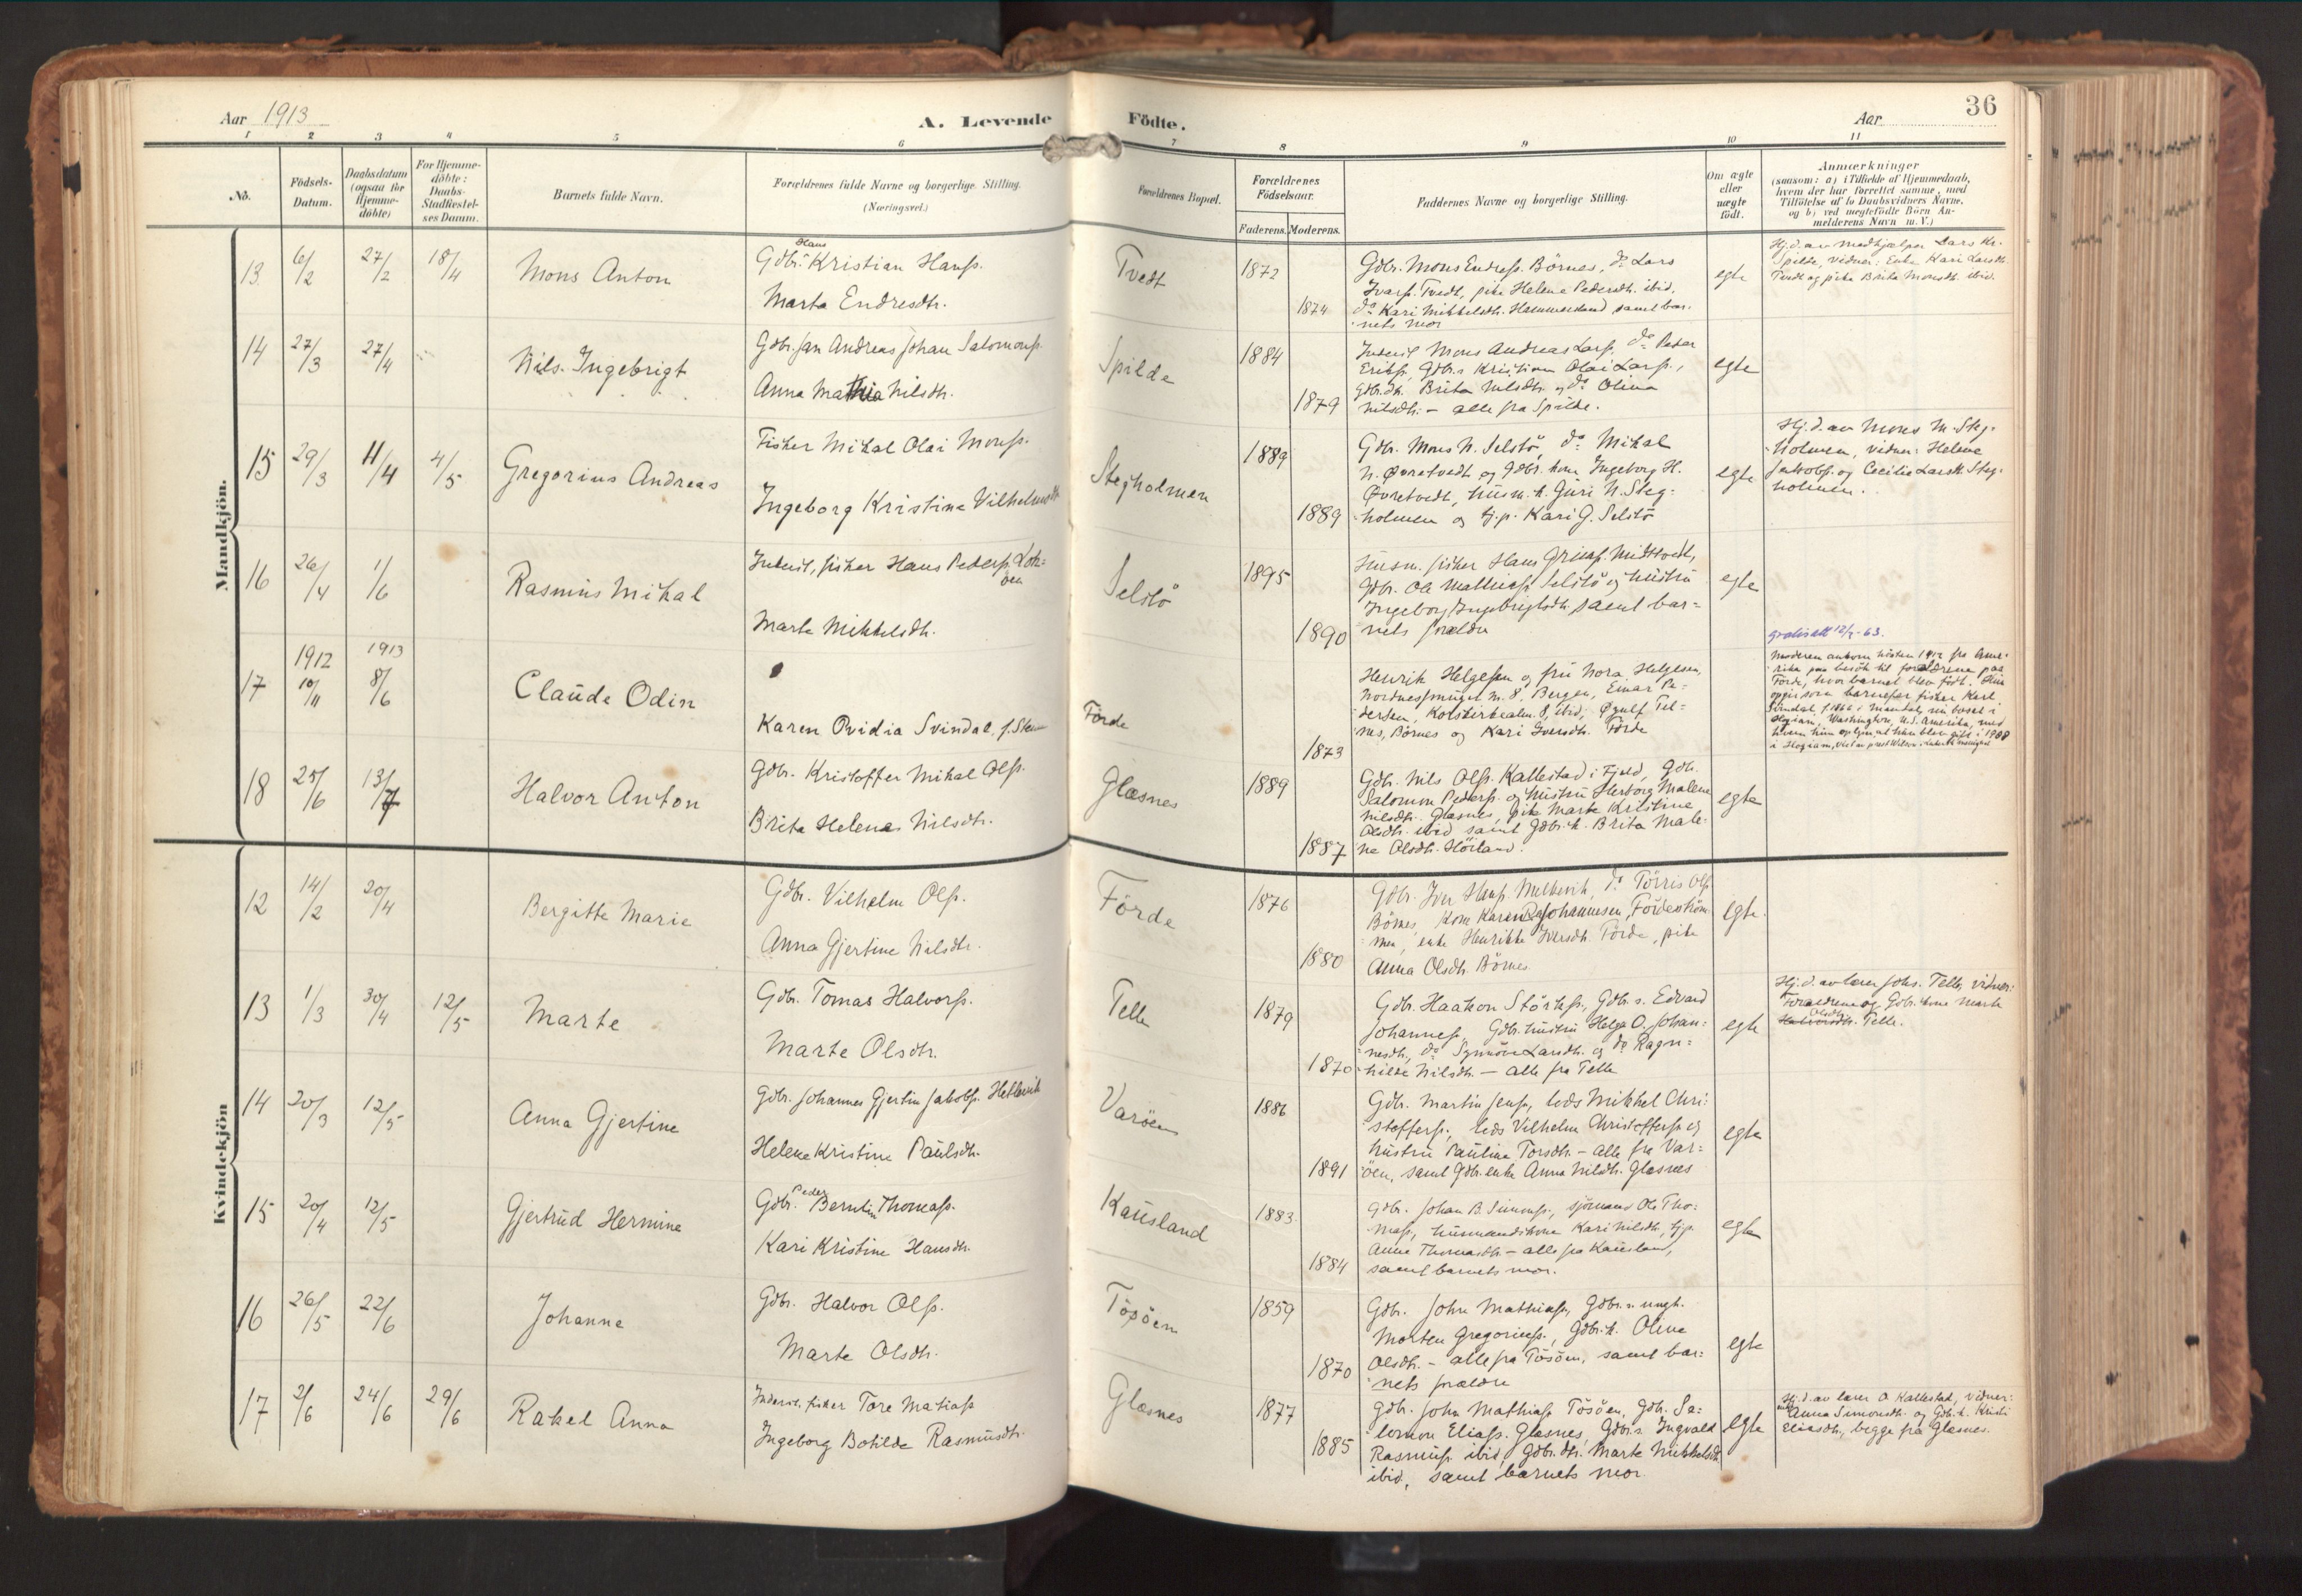 Aar 1913
A. Levende
Födte.
Aar
36
1 2 3 4 5 6 7 8 9 10 11
No.
Födsels-
Datum.
Daabsdatum
(ogsaa for
Hjemme-
döbte)
For Hjemme-
döbte:
Daabs-
Stadfæstel-
ses Datum.
Barnets fulde Navn.
Forældrenes fulde Navne og borgerlige Stilling.
(Næringsvei.)
Forældrenes Bopæl.
Forældrenes
Födselsaar.
Faderens. Moderens.
Faddernes Navne og borgerlige Stilling.
Om ægte
eller
uægte
födt.
Anmærkninger
(saasom: a) i Tilfælde af Hjemmedaab,
hvem der har forrettet samme, med
Tilföielse af to Daabsvidners Navne,
og b) ved uægtefödte Börn An-
melderens Navn m. V.)
Mandkjön.
13 6/2 27/2 18/4
Mons Anton
Hans
Gdbr. Kristian Hanss.
Marta Endresdtr.
Tvedt
1872
1874
Gdbr. Mons Endress. Börnes, do Lars
Ivars. Tvedt, pike Helene Pedersdtr. ibid.
do Kari Mikkelsdtr. Hammersland samt bar-
nets mor
egte
Hj.d. av medhjælper Lars Kr.
Spilde, vidner: Enke Kari Larsdtr.
Tvedt og pike Brita Monsdtr. ibid.
14 27/3 27/4
Nils Ingebrigt
Gdbr. Jan Andreas Johan Salomons.
Anna Mathia Nilsdtr.
Spilde
1884
1879
Inderst Mons Andreas Lars. do Peder
Eriks. Gdbr.s Kristian Olai Lars.,
Gdbr.dtr. Brita Nilsdtr. og do Olina
Nilsdtr. - alle fra Spilde.
egte
15 29/3 11/4 4/5
Gregorius Andreas
Fisker Mikal Olai Monss.
Ingeborg Kristine Vilhelmsdtr
Stegholmen
1889
1889
Gdbr. Mons N. Selstö, do Mikal
N. Övretvedt og Gdbr. kone Ingeborg H.
Övretvedt, husm. k. Guri N. Steg-
holmen og tj.p. Kari G. Selstö
egte
Hj.d. av Mons M. Steg-
holmen, vidner: Helene
Jakobs. og Cecilie Larsdtr. Steg-
holmen.
16 26/4 1/6
Rasmus Mikal
Inderst, fisker Hans Peders.
Marta Mikkelsdtr.
Selstö
1895
1890
Husm. fisker Hans Midttvedt,
Gdbr. Ole Mathias. Selstö og hustru
Ingeborg Ingebrigtsdtr. samt bar-
nets foreldre
egte
17 1912 10/11 1913 8/6
Claude Odin
Karen Ovidia Svindal, f.
Förde
1873
Henrik Helgesen og fru Nora Helgesen,
Nordnessmuget n. 8, Bergen, Einar Pe-
dersen, 8, ibid, Øyulf Tel-
nes, Börnes og Kari Iversdtr. Förde
gratisatt 12/7-63.
Moderen ankom hösten 1912 fra Ame-
rika paa besök til forældrene paa
Förde, hvor barnet blev födt. Hun
opgir som barnefar fisker Karl
Svindal, f. 1866 i Mandal, nu bosat i
Hoqiam, Washington, U.S. Amerika, med
hvem hun oplyser at hun blev gift i 1908
i Hoqiam,
18 25/6 13/7
Halvor Anton
Gdbr. Kristoffer Mikal Ols.
Brita Helene Nilsdtr.
Glæsnes
1889
1887
Gdbr. Nils Ols. Kallestad i Fjeld, Gdbr.
Salomon Peders. og hustru Herborg Malene
Nilsdtr. Glæsnes, pike Marte Kristine
Olsdtr. ibid samt Gdbr.k. Brita Male-
ne Olsdtr. Hörland.
egte
Kvindekjön
12 14/2 20/4
Bergitte Marie
Gdbr. Vilhelm Ols.
Anna Gjertine Nilsdtr.
Förde
1876
1880
Gdbr. Iver Hans. do Törris Ols.
Börnes, Kone Karen Johannesen, Fördeström-
men, enke Henrikke Iversdtr. Förde, pike
Anna Olsdtr. Börnes
egte.
13 1/3 30/4 12/5
Marte
Gdbr. Tomas Halvors.
Marte Olsdtr.
Telle
1879
1870
Gdbr. Haakon Störks., Gdbr. s. Edvard
Johannes, Gdbr. hustru Helga O. Johan-
nesdtr., do Synnöve Larsdtr. og do Ragn-
hilde Nilsdtr. - alle fra Telle
egte
Hj.d. av lærer Johs. Telle, vidner:
Forældrene og Gdbr. kone Marte
Olsdtr.
Halvorsdtr. Telle.
14 20/3 12/5
Anna Gjertine
Gdbr. Johannes Gjertin Jakobs. Hellevik
Helene Kristine Paulsdtr.
Varöen
1886
1891
Gdbr. Martin Jens., leds Mikkel Chri-
stoffers., leds Vilhelm Christoffers. og
hustru Pauline Torsdtr. - alle fra Var-
öen, samt Gdbr. enke Anna Nilsdtr. Glæsnes
egte
15 20/4 12/5
Gjertrud Hermine
Peder
Gdbr. Berntin Thomas.
Kari Kristine Hansdtr.
Kausland
1883
1884
Gdbr. Johan B. Simons., sjömand Ole Tho-
mas., husmandskone Kari Nilsdtr., tj.p.
Anna Thomasdtr. - alle fra Kausland,
samt barnets mor.
egte
16 26/5 22/6
Johanne
Gdbr. Halvor Ols.
Marte Olsdtr.
Tösöen
1859
1870
Gdbr. John Mathias., Gdbr. s. ungk.
Morten Gregorius., Gdbr.k. Oline
Olsdtr. - alle fra Tösöen, samt bar-
nets foreldre
egte
17 2/6 24/6 29/6
Rakel Anna
Inderst, fisker Tore Matias
Ingeborg Botilde Rasmusdtr.
Glæsnes
1877
1885
Gdbr. John Mathias Tösöen, Gdbr. Sa-
lomon Elias. Glæsnes, Gdbr. s. Ingvald
Rasmus. ibid, Gdbr. dtr. Marte Mikkelsdtr.
ibid, samt barnets mor
egte
Hj.d. av lærer O. Kallestad, vidner:
enke Anna Simonsdtr. og Gdbr. k. Kristi
Eliasdtr., begge fra Glæsnes.